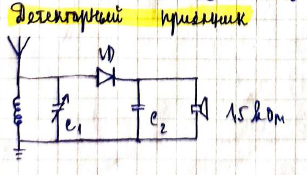 Детекторный приёмник
VD
C₁
C₂
1,5 кОм